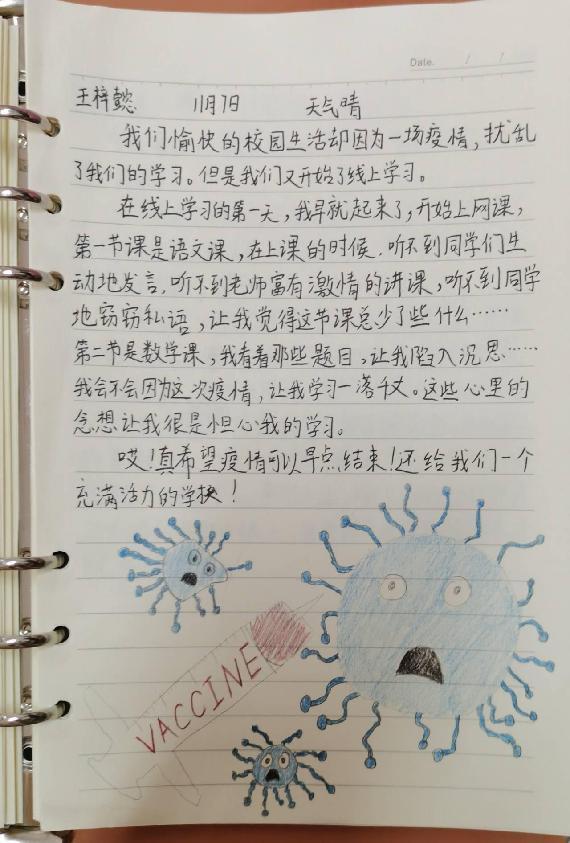 Date. / /
王梓懿 11月7日 天气晴
我们愉快的校园生活却因为一场疫情，扰乱
了我们的学习。但是我们又开始了线上学习。
在线上学习的第一天，我早就起来了，开始上网课，
第一节课是语文课，在上课的时候，听不到同学们生
动地发言，听不到老师富有激情的讲课，听不到同学
地窃窃私语，让我觉得这节课总少了些什么……
第二节是数学课，我看着那些题目，让我陷入沉思……
我会不会因为这次疫情，让我学习一落千丈。这些心里的
念想让我很是担心我的学习。
哎！真希望疫情可以早点结束！还给我们一个
充满活力的学校！
VACCINE